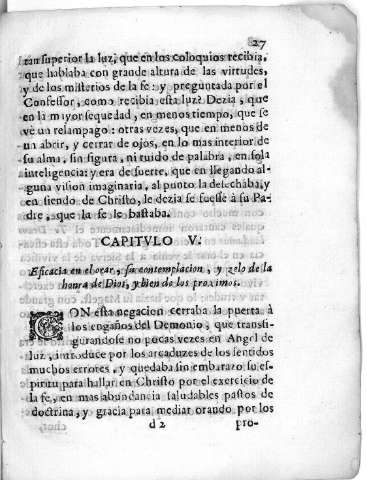 27
tan superior la luz, que en los coloquios recibia,
que hablaba con grande altura de las virtudes,
y de los misterios de la fe: y preguntada por el
Confessor, como recibia esta luz? Dezia, que
en la mayor sequedad, en menos tiempo, que se
vè un relampago: otras vezes, que en menos de
un abrir, y cerrar de ojos, en lo mas interior de
su alma, sin figura, ni ruido de palabra, en sola
inteligencia: y era de suerte, que en llegando al-
guna vision imaginaria, al punto la desechaba, y
en siendo de Christo, le dezia se fuesse à su Pa-
dre, que la fe le bastaba.
CAPITVLO V.
Eficacia en el orar, su contemplacion, y zelo de la
honra de Dios, y bien de los proximos.
CON esta negacion cerraba la puerta à
los engaños del Demonio, que transfi-
gurandose no pocas vezes en Angel de
luz, introduce por los arcaduzes de los sentidos
muchos errores, y quedaba sin embarazo su es-
piritu para hallar en Christo por el exercicio de
la fe, en mas abundancia saludables pastos de
doctrina, y gracia para mediar orando por los
d 2 pro-